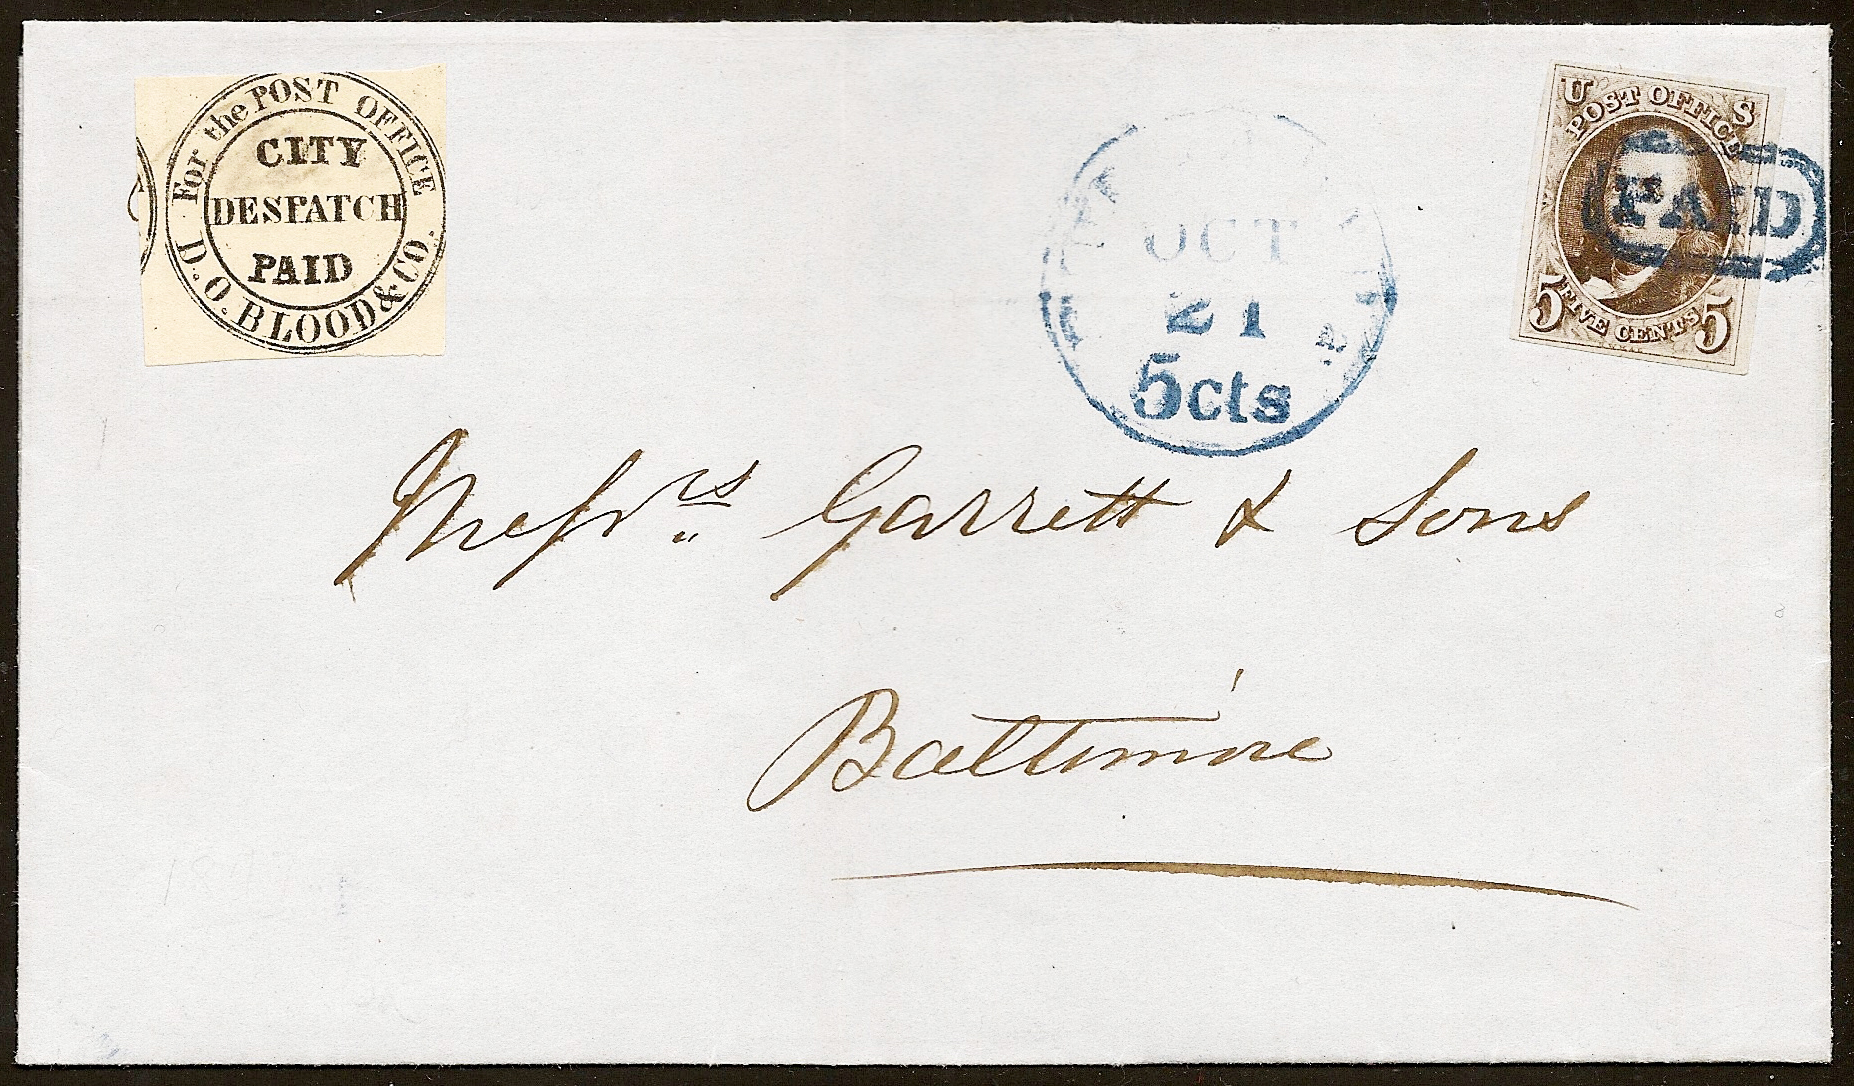 For the POST OFFICE
CITY
DESPATCH
PAID
D.O. BLOOD & CO.
OCT
21
5cts
U S
POST OFFICE
PAID
5 FIVE CENTS 5
Messrs Garrett & Sons
Baltimore